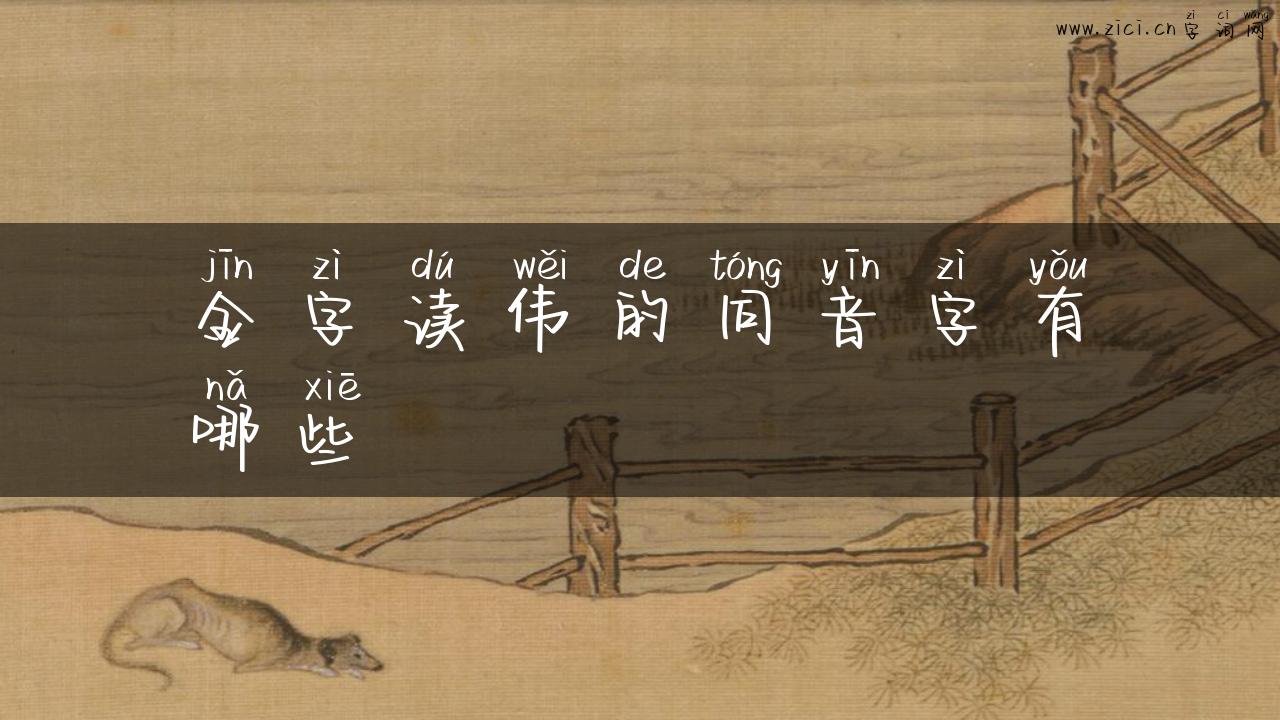 zì cí wǎng
www.zici.cn字词网
jīn zì dú wěi de tóng yīn zì yǒu
金字读伟的同音字有
nǎ xiē
哪些